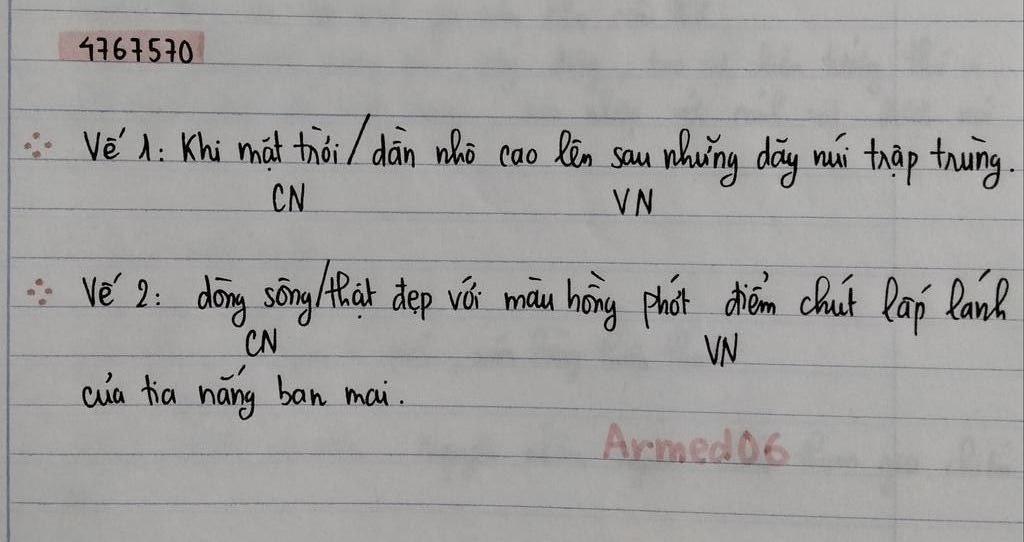 4767570
Vế 1: Khi mặt trời / dần nhô cao lên sau những dãy núi trập trùng.
CN VN
Vế 2: dòng sông / thật đẹp với màu hồng phớt điểm chút lấp lánh
CN VN
của tia nắng ban mai.
Armed06